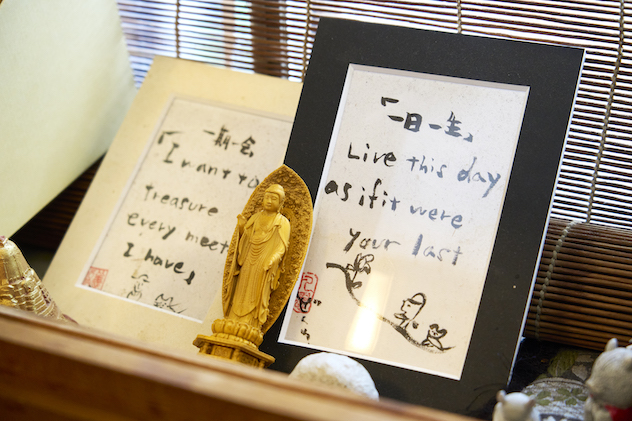 「一期一会
I want to
treasure
every meet
I have」
「一日一生」
Live this day
as if it were
your last